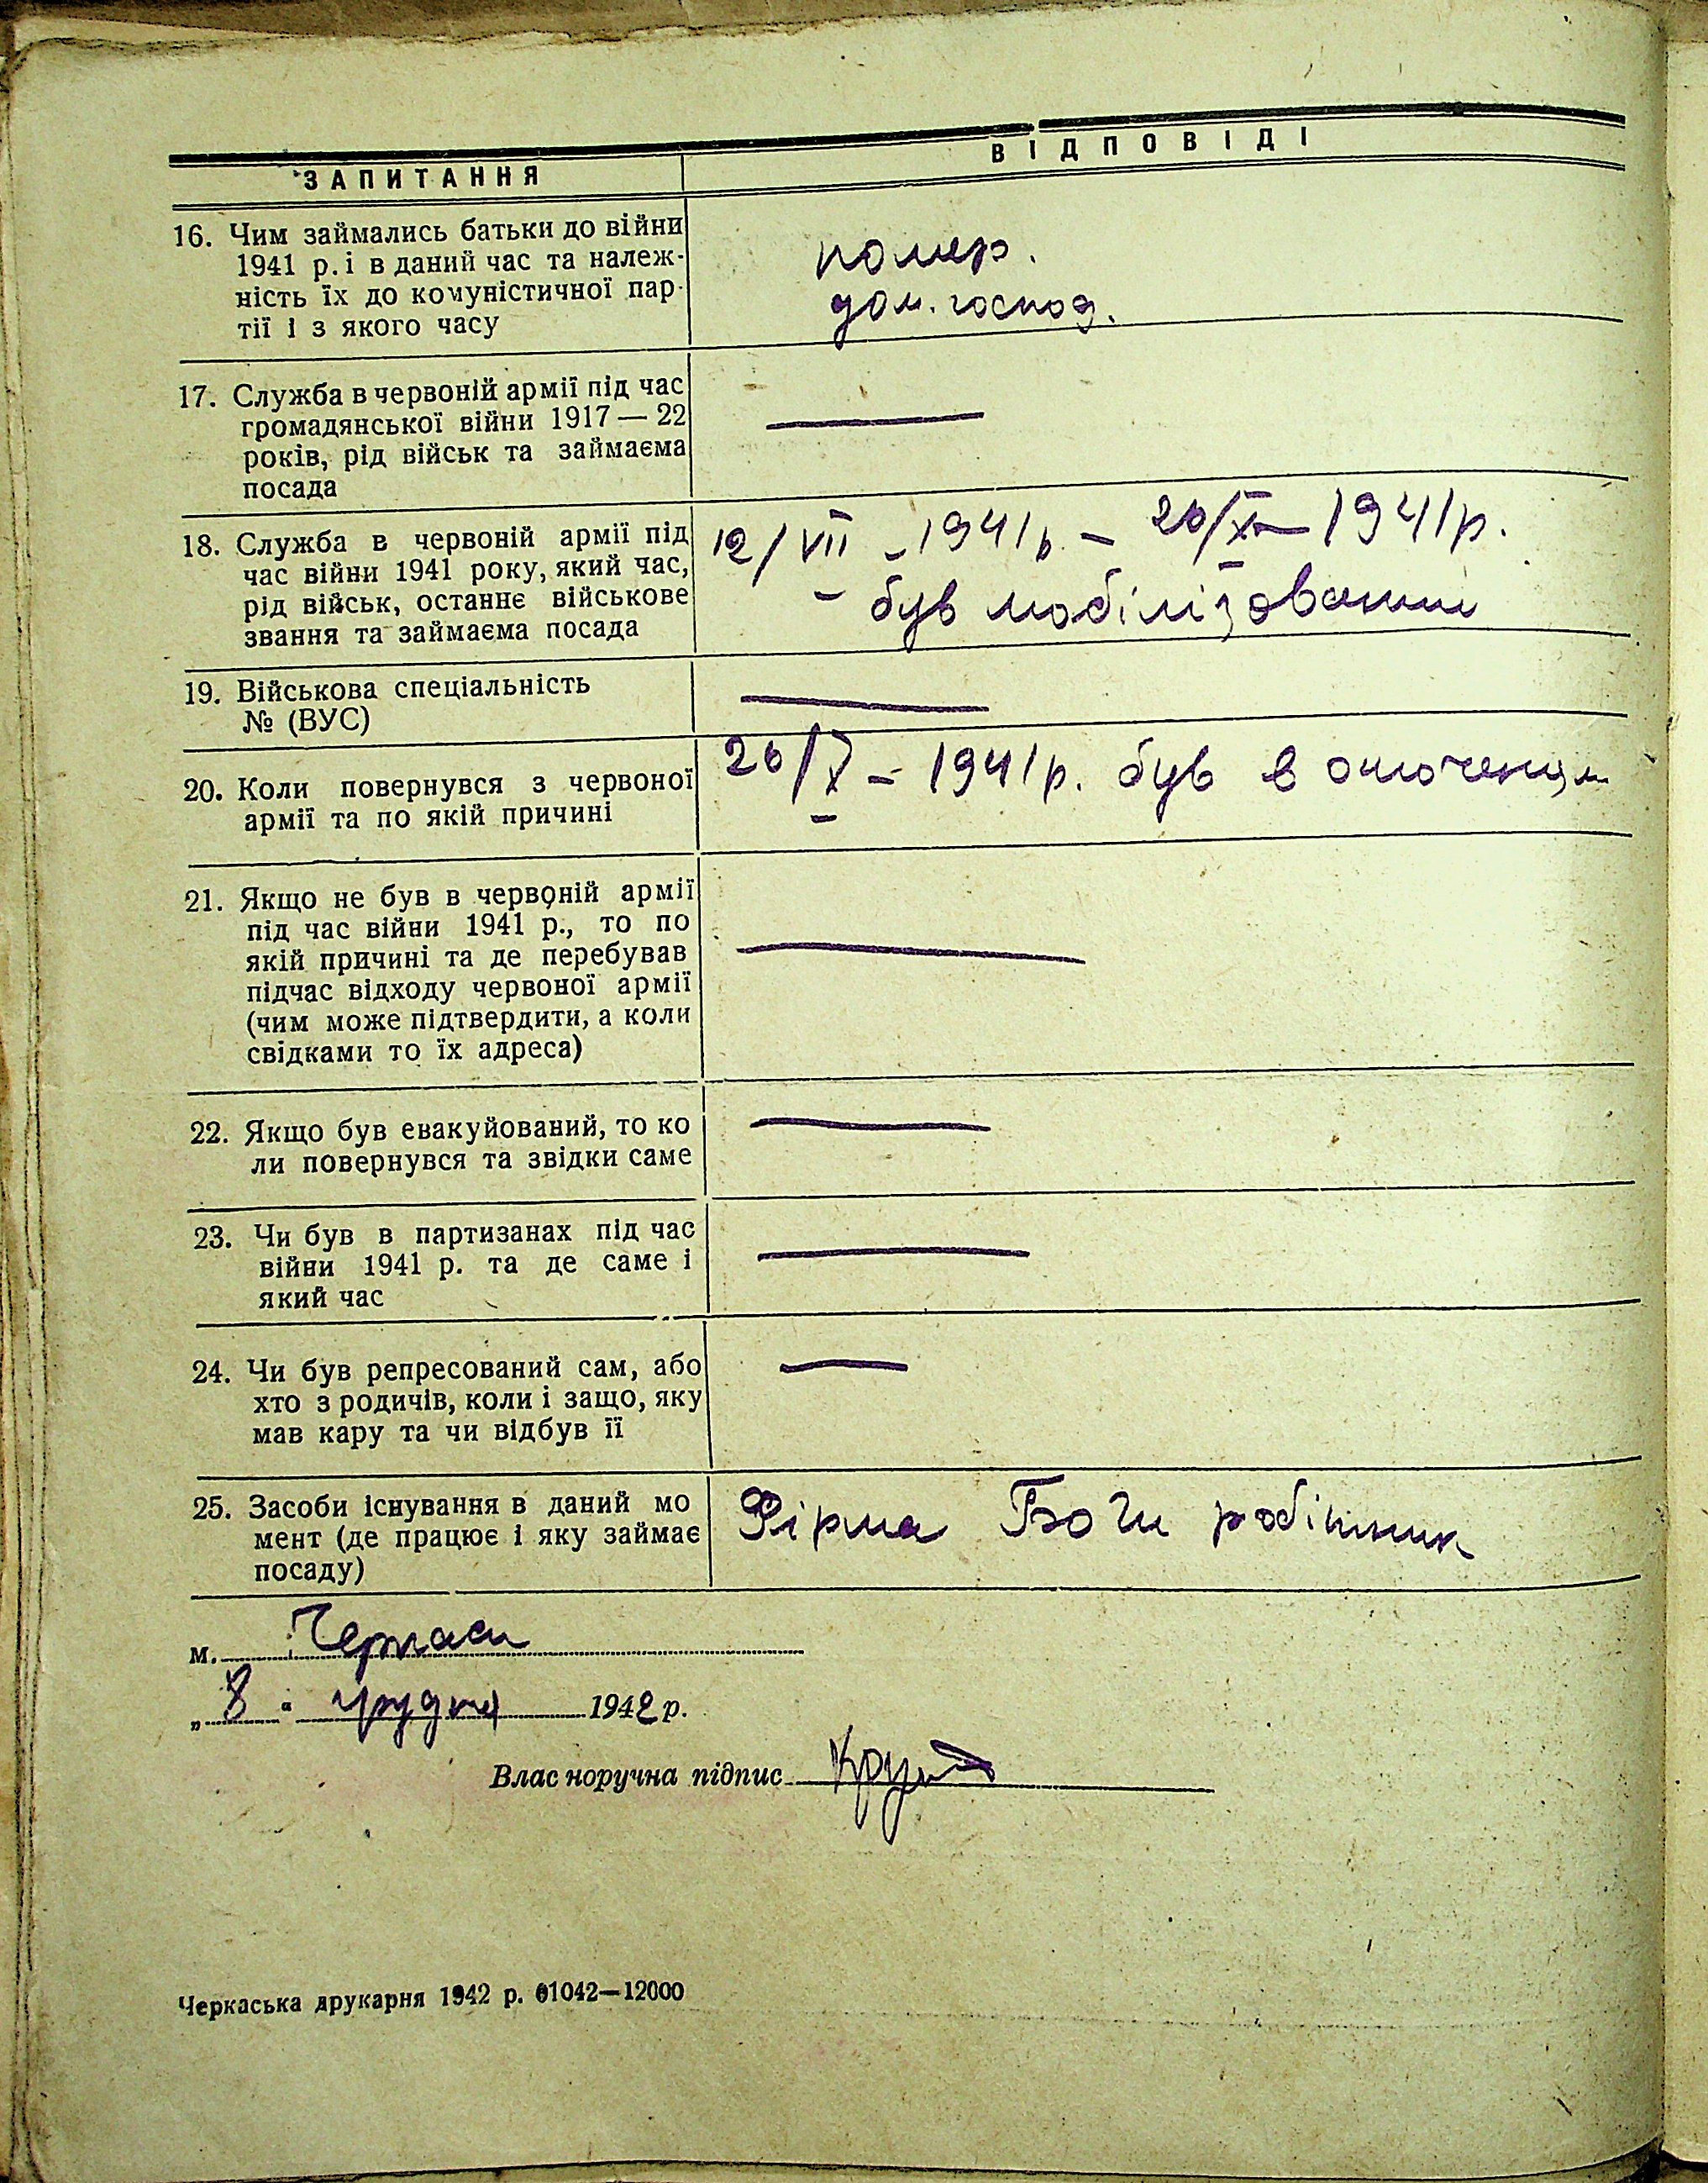 ЗАПИТАННЯ
ВІДПОВІДІ
16. Чим займались батьки до війни
1941 р. і в даний час та належ-
ність їх до комуністичної пар-
тії і з якого часу
помер.
дом. господ.
17. Служба в червоній армії під час
громадянської війни 1917 — 22
років, рід військ та займаєма
посада
—
18. Служба в червоній армії під
час війни 1941 року, який час,
рід військ, останнє військове
звання та займаєма посада
12/VII – 1941р. – 26/X – 1941р.
– був мобілізований
19. Військова спеціальність
№ (ВУС)
—
20. Коли повернувся з червоної
армії та по якій причині
26/X – 1941р. був в оточенци
21. Якщо не був в червоній армії
під час війни 1941 р., то по
якій причині та де перебував
підчас відходу червоної армії
(чим може підтвердити, а коли
свідками то їх адреса)
—
22. Якщо був евакуйований, то ко
ли повернувся та звідки саме
—
23. Чи був в партизанах під час
війни 1941 р. та де саме і
який час
—
24. Чи був репресований сам, або
хто з родичів, коли і защо, яку
мав кару та чи відбув її
—
25. Засоби існування в даний мо
мент (де працює і яку займає
посаду)
Фірма робітник
м. Черкаси
„ 8 “ грудня 1942 р.
Власноручна підпис
Черкаська друкарня 1942 р. 01042—12000